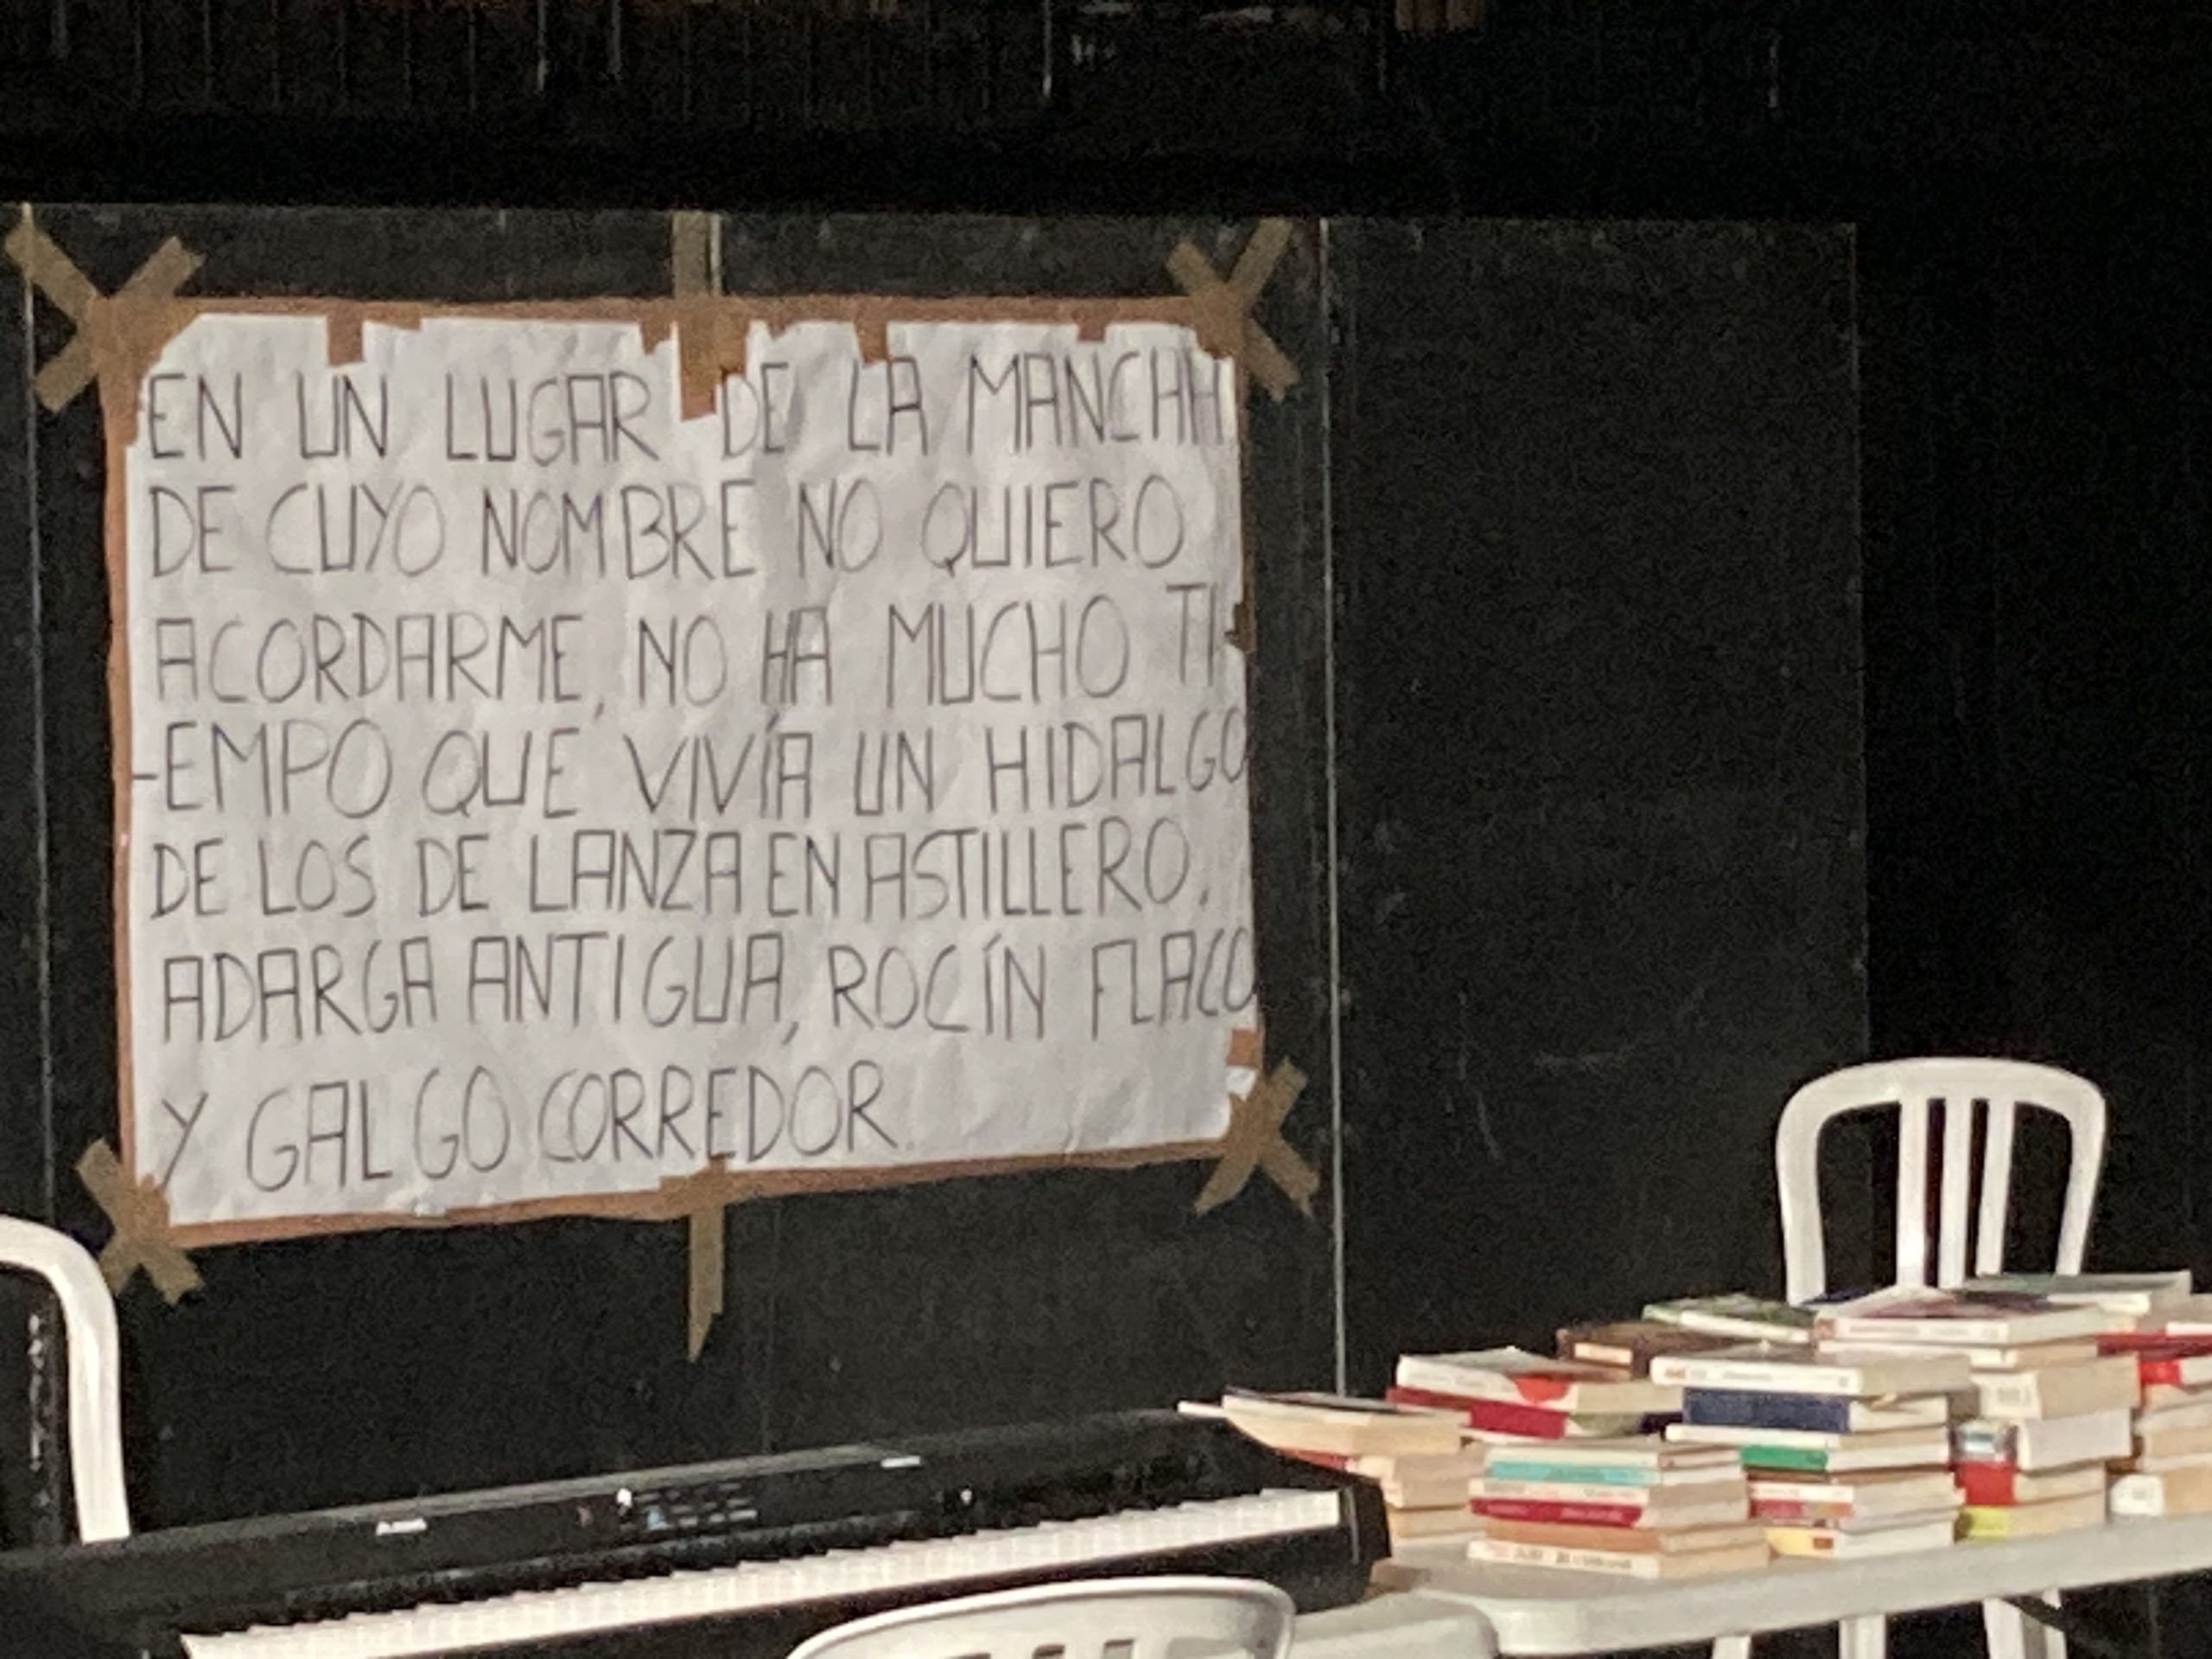 EN UN LUGAR DE LA MANCHA,
DE CUYO NOMBRE NO QUIERO
ACORDARME, NO HA MUCHO TI-
-EMPO QUE VIVÍA UN HIDALGO
DE LOS DE LANZA EN ASTILLERO,
ADARGA ANTIGUA, ROCÍN FLACO
Y GALGO CORREDOR.